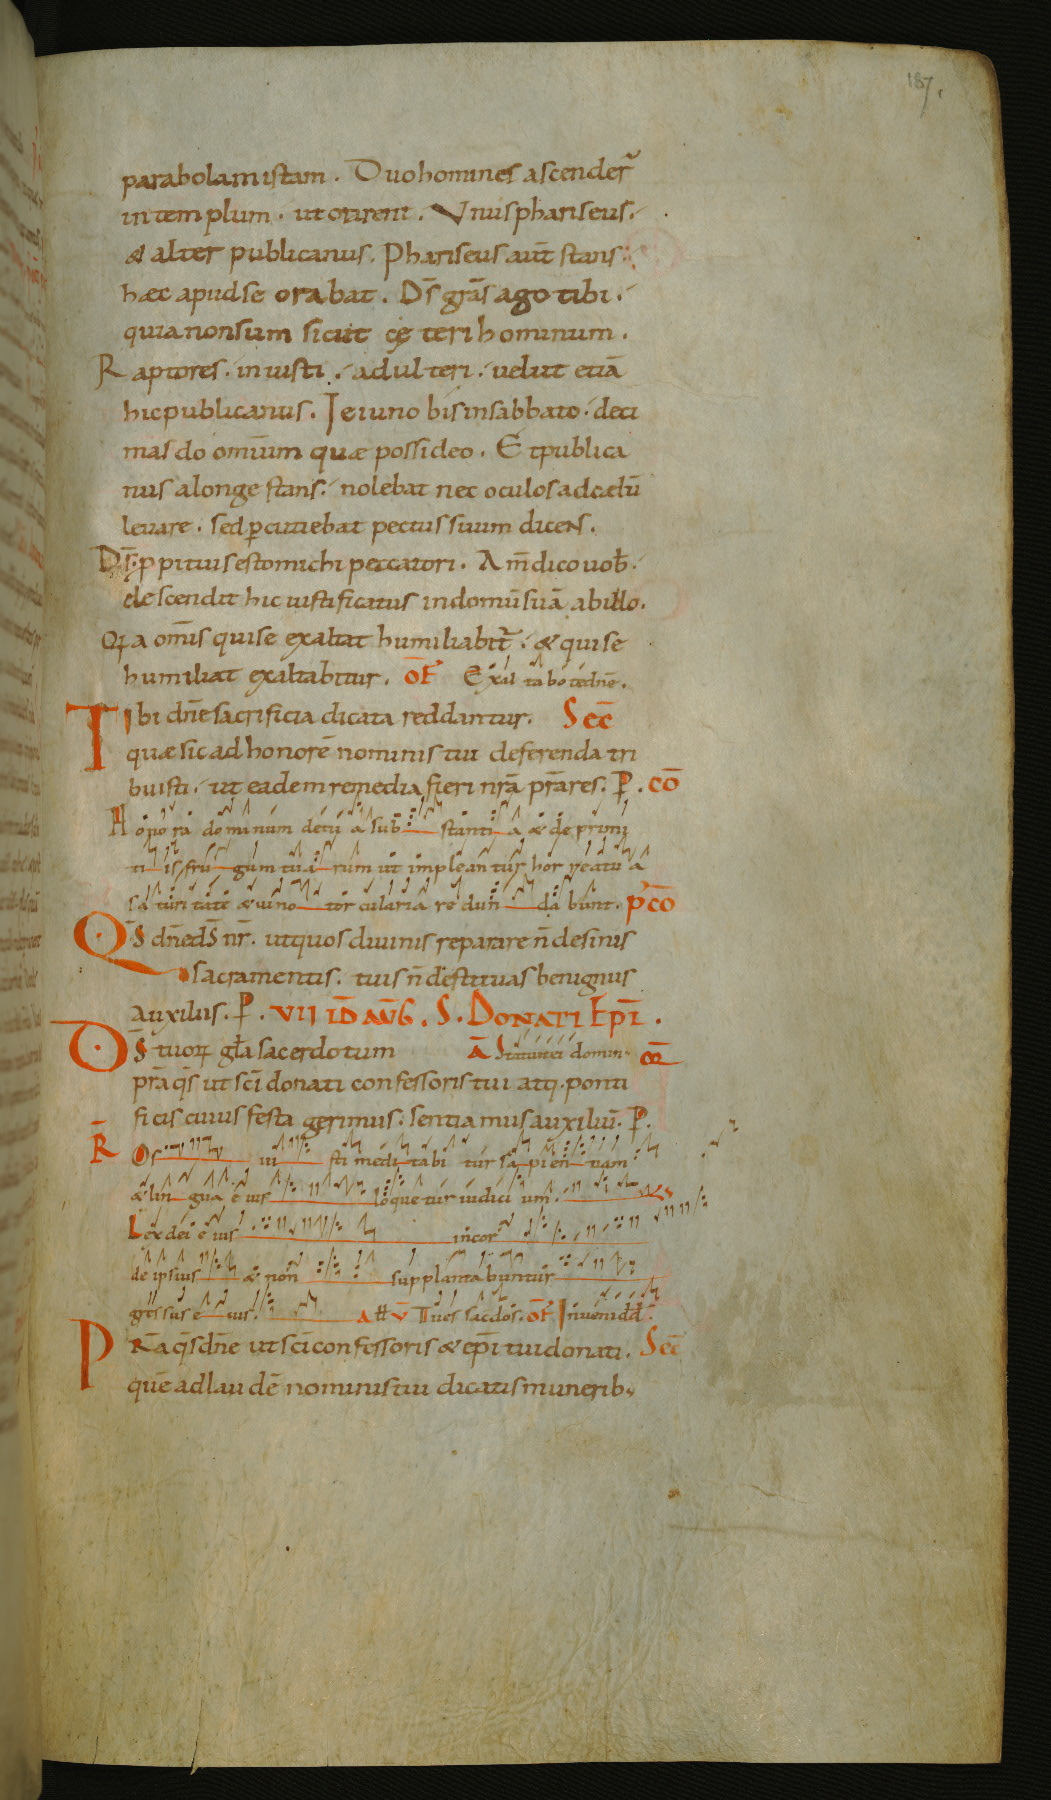 187.
parabolam istam. Duo homines ascender̄
in templum. ut orarent. Unus phariseus.
& alter publicanus. Phariseus aut̄ stans
hæc apud se orabat. Ds̄ grās ago tibi.
quia non sum sicut cęteri hominum.
Raptores. iniusti. adulteri. velut etiā
hic publicanus. Ieiuno bis in sabbato. deci
mas do omīum quæ possideo. Et publica
nus a longe stans. nolebat nec oculos ad cælū
levare. sed ꝑcutiebat pectus suum dicens.
Ds̄ ꝓpitius esto michi peccatori. Am̄ dico vob̄.
descendit hic iustificatus in domū suā ab illo.
Qꝛa om̄s qui se exaltat humiliabit̄. & qui se
humiliat exaltabitur. OF̄ Exaltabo te dn̄e.
Tibi dn̄e sacrificia dicata reddantur. Sec̄
quæ sic ad honorē nominis tui deferenda tri
buisti. ut eadem remedia fieri nr̄a pr̄ares. P. CŌ
Honora dominum de tua substantia & de primi
tiis frugum tuarum ut implean tur horrea tua
saturitate & vino torcularia redundabunt. P̄CŌ
Qs̄ dn̄e ds̄ nr̄. ut quos divinis reparare n̄ desinis
sacramentis. tuis n̄ destituas benignus
auxiliis. P. VII ID AUḠ. S. DONATI EPĪ.
Ds̄ tuoꝝ gl̄a sacerdotum Ā Statuit ei domin. OR̄
pr̄a qs̄ ut sc̄i donati confessoris tui atq. ponti
ficis cuius festa gerimus. sentiamus auxiliū. P.
R̄ Os iusti meditabitur sapientiam
& lingua eius loquetur iudicium.
Lex dei eius in cor
de ipsius & non supplantabuntur
gressus eius. All V̄ Tu es sacdōs. OF̄ Inveni dd̄.
Pr̄a qs̄ dn̄e ut sc̄i confessoris & ep̄i tui donati. Sec̄
quē ad laudē nominis tui dicatis munerib;